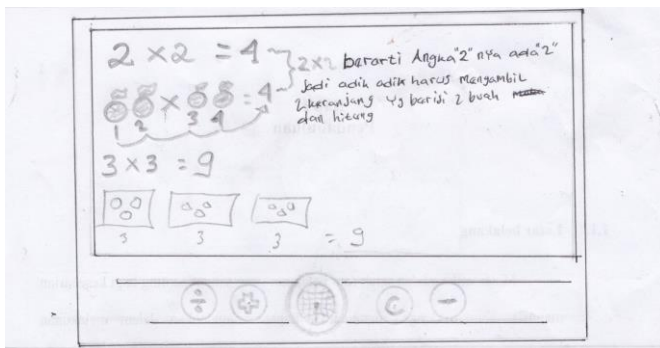 2 × 2 = 4
2×2 berarti Angka "2" nya ada "2"
Jadi adik adik harus Mengambil
2 keranjang yg berisi 2 buah
dan hitung
× = 4
1 2 3 4
3 × 3 = 9
3 3 3 = 9
÷ C −